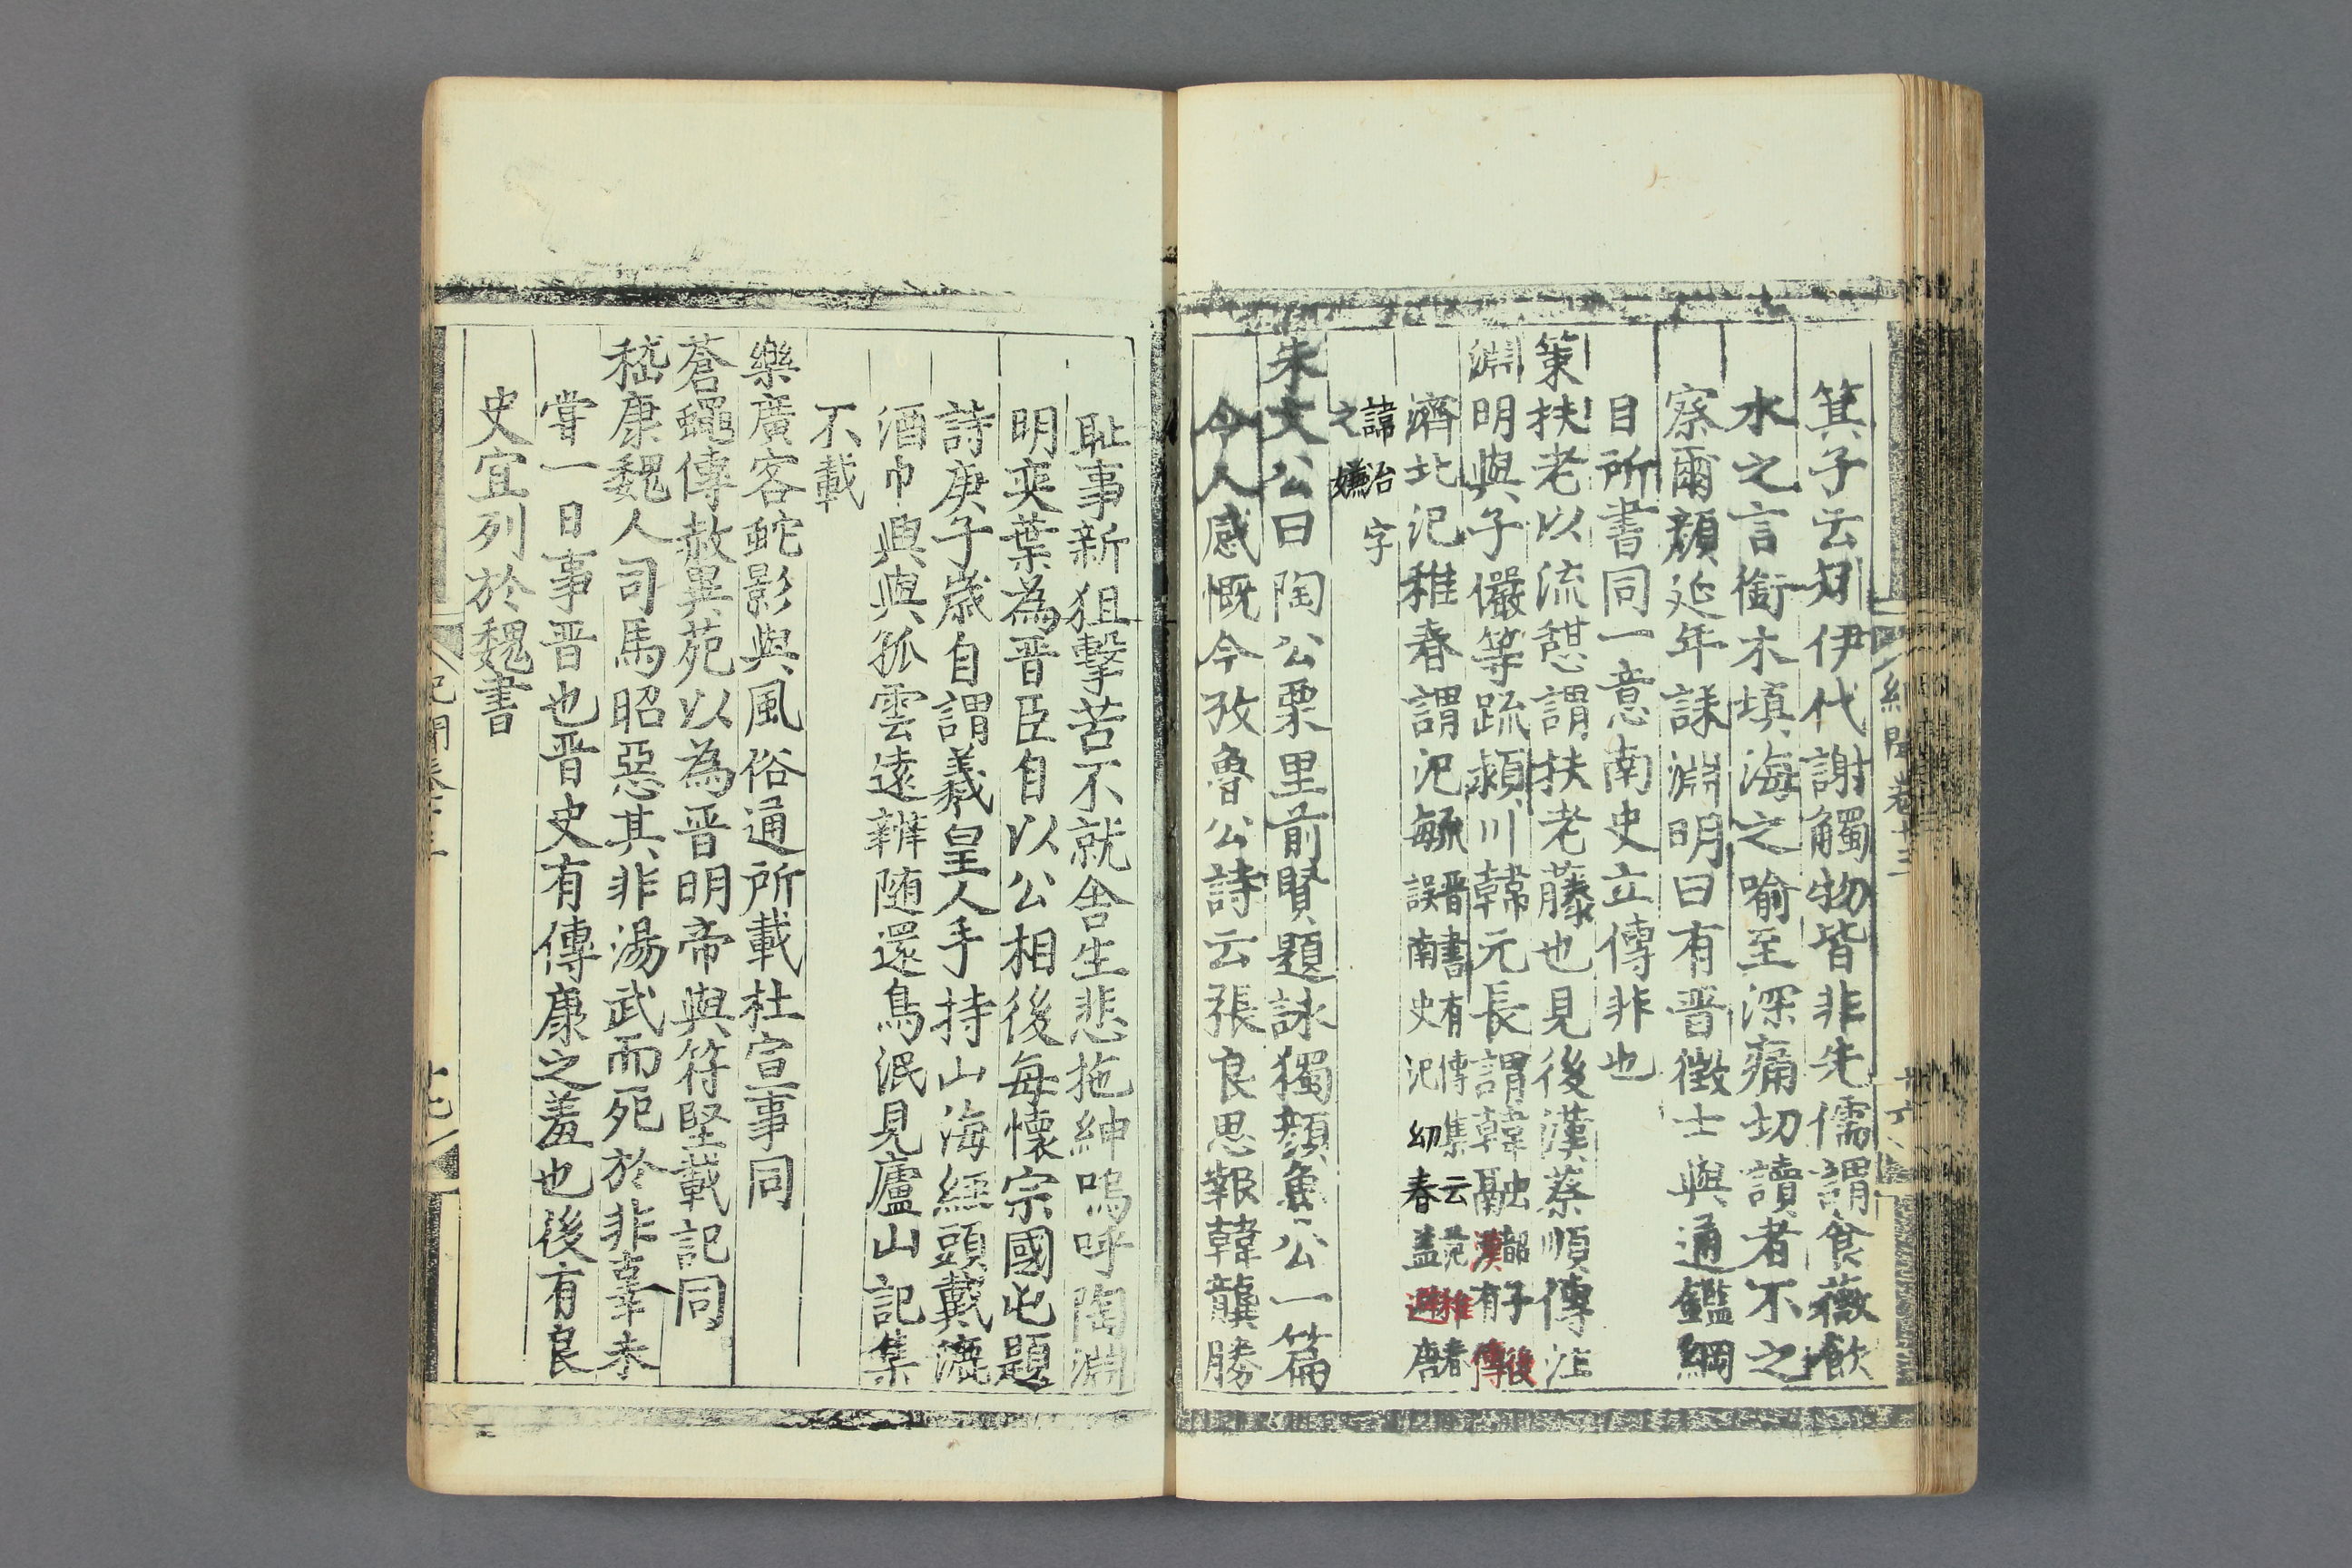 箕子云矧伊代謝觸物皆非先儒謂食薇飲
水之言銜木填海之喻至深痛切讀者不之
察爾顏延年誄淵明曰有晋徵士與通鑑綱
目所書同一意南史立傳非也
策扶老以流憩謂扶老藤也見後漢蔡順傳注
淵明與子儼等疏潁川韓元長謂韓融韶子後漢有傳
濟北氾稚春謂氾毓晋書有傳集云范稚者誤南史氾幼春盖避唐
諱治字之嫌
朱文公曰陶公栗里前賢題詠獨顔魯公一篇
令人感慨今攷魯公詩云張良思報韓龔勝
耻事新狙擊苦不就舍生悲拖紳嗚呼陶淵
明奕葉為晋臣自以公相後每懷宗國屯題
詩庚子歲自謂羲皇人手持山海經頭戴漉
酒巾興與孤雲遠辨随還鳥泯見廬山記集
不載
樂廣客虵影與風俗通所載杜宣事同
蒼蠅傳赦異苑以為晋明帝與符堅載記同
嵇康魏人司馬昭惡其非湯武而死於非辜未
嘗一日事晋也晋史有傳康之羞也後有良
史宜列於魏書